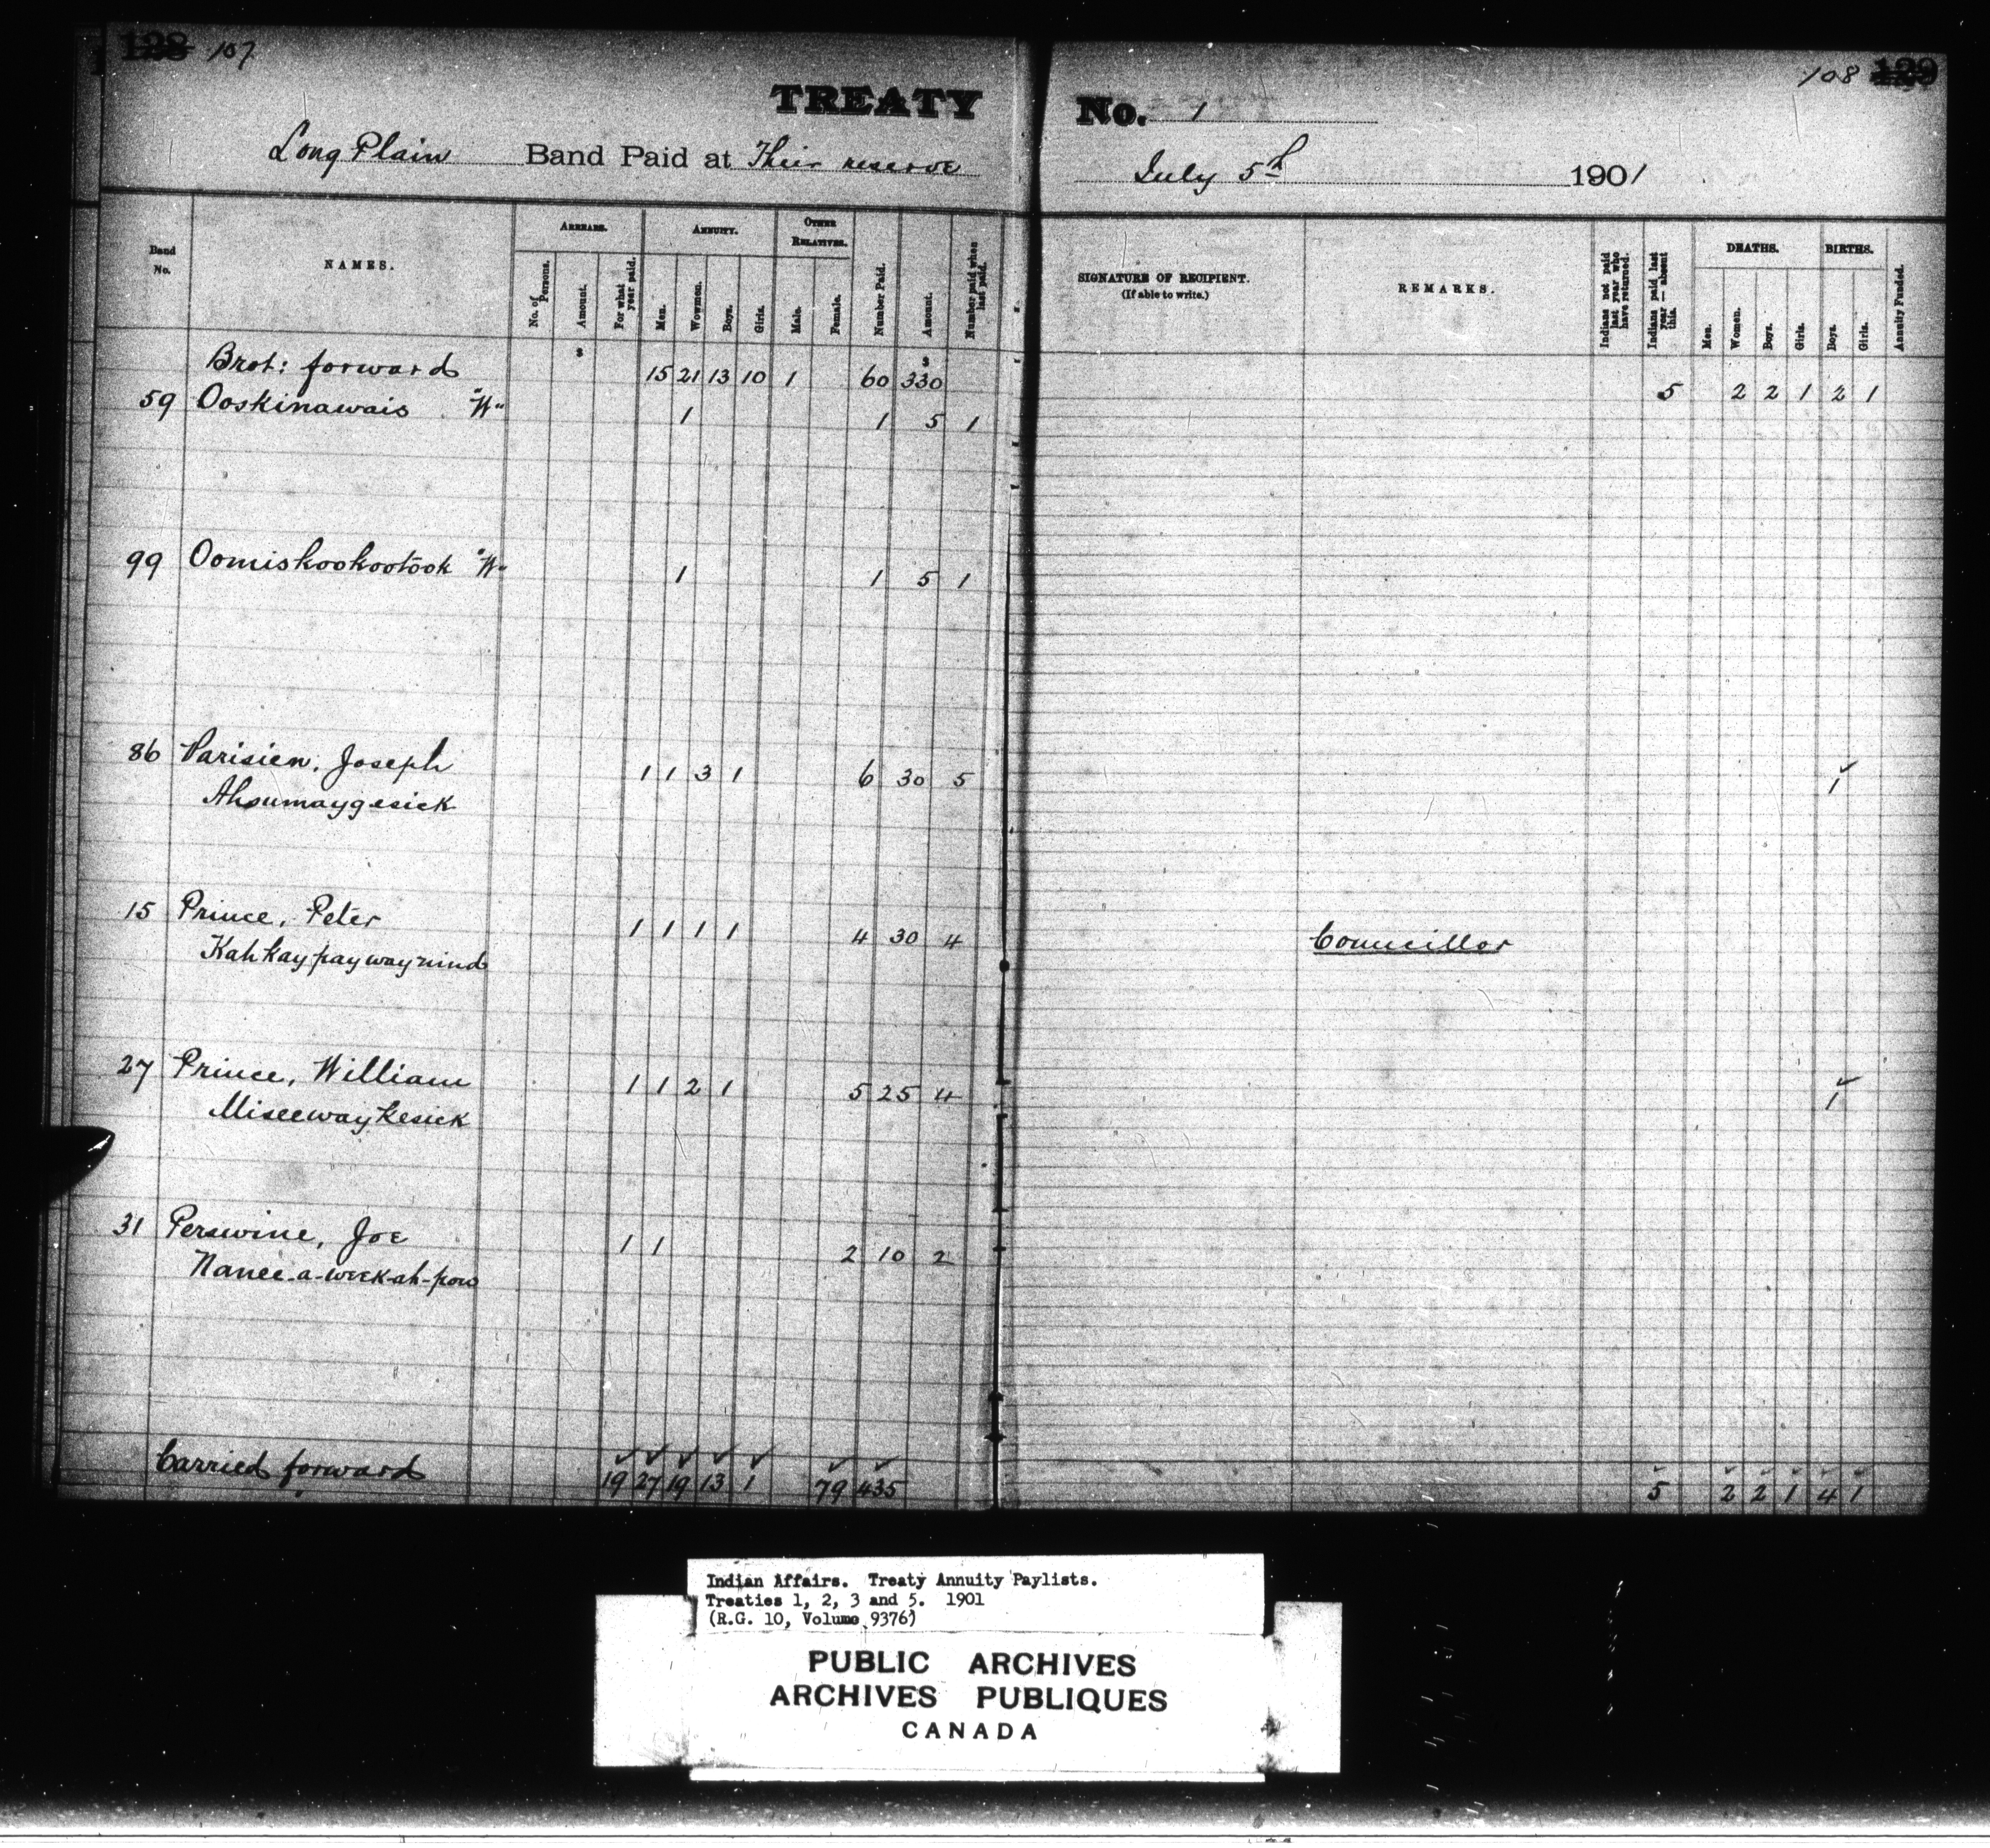 128 107
108 129
TREATY No. 1
Long Plain Band Paid at Their reserve July 5th 1901
Band No.
NAMES.
ARREARS.
No. of Persons.
Amount.
For what year paid.
ANNUITY.
Men.
Women.
Boys.
Girls.
OTHER RELATIVES.
Male.
Female.
Number Paid.
Amount.
Number paid when last paid.
SIGNATURE OF RECIPIENT.
(If able to write.)
REMARKS.
Indians not paid last year who have returned.
Indians paid last year — absent this.
DEATHS.
Men.
Women.
Boys.
Girls.
BIRTHS.
Boys.
Girls.
Annuity Funded.
$ $
Brot: forward 15 21 13 10 1 60 330 5 2 2 1 2 1
59 Ooskinawais "W" 1 1 5 1
99 Oomiskookootook "W" 1 1 5 1
86 Parisien, Joseph 1 1 3 1 6 30 5 1
Ahsumaygesick
15 Prince, Peter 1 1 1 1 4 30 4 Councillor
Kahkaypaywaynind
27 Prince, William 1 1 2 1 5 25 4 1
Miseewaykesick
31 Perswine, Joe 1 1 2 10 2
Nanee-a-week-ah-pow
Carried forward 19 27 19 13 1 79 435 5 2 2 1 4 1
Indian Affairs. Treaty Annuity Paylists.
Treaties 1, 2, 3 and 5. 1901
(R.G. 10, Volume 9376)
PUBLIC ARCHIVES
ARCHIVES PUBLIQUES
CANADA